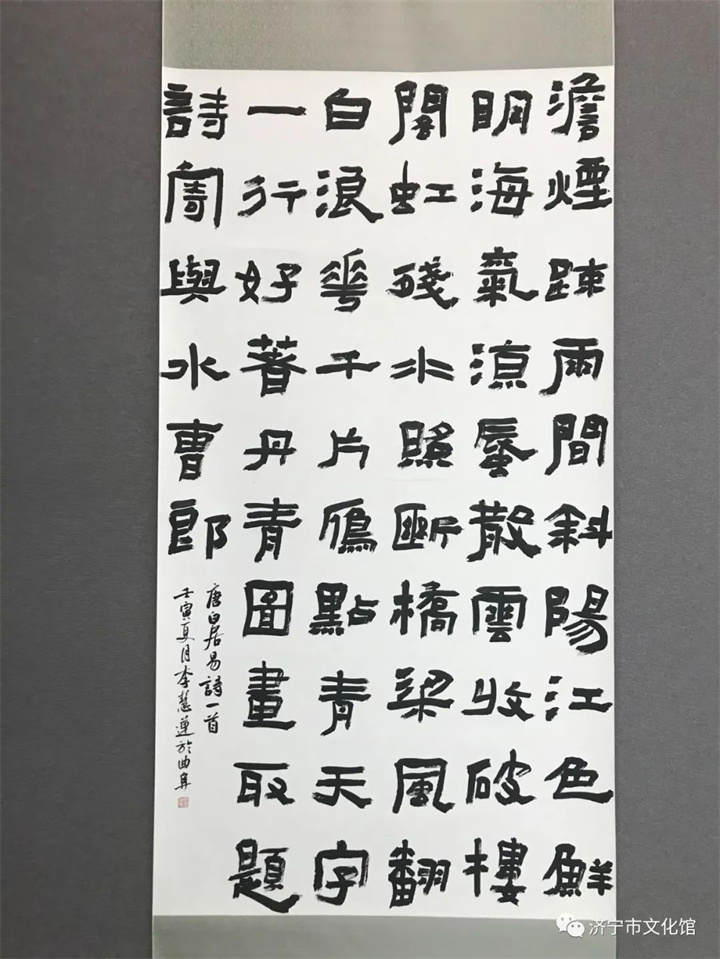 澹煙踈雨間斜陽江色鮮
明海氣涼蜃散雲收破樓
閣虹殘水照斷橋梁風翻
白浪華千片鴈點青天字
一行好著丹青圖畫取題
詩寄與水曹郎
唐白居易詩一首
壬寅夏月李慧蓮於曲阜
济宁市文化馆